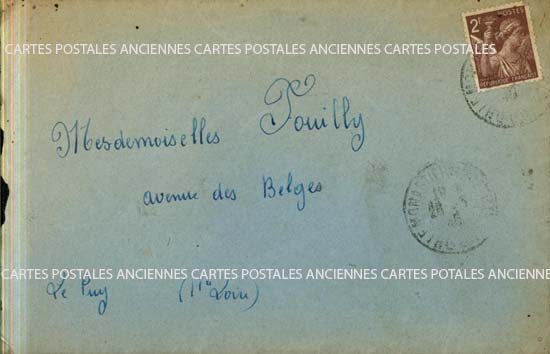 2f POSTES
REPUBLIQUE FRANÇAISE
CARTES POSTALES ANCIENNES CARTES POSTALES ANCIENNES CARTES POSTALES ANCIENNES
Mesdemoiselles Fouilly
avenue des Belges
CARTES POSTALES ANCIENNES CARTES POSTALES ANCIENNES CARTES POTALES ANCIENNES
Le Puy (Hte Loire)